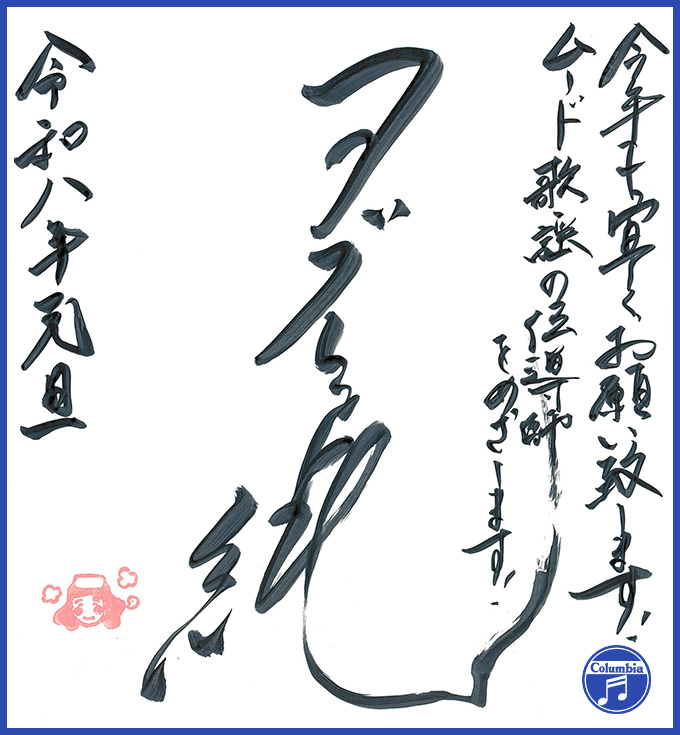 今年も宜しくお願い致します!
ムード歌謡の伝導師
をめざします!
タブレット純
令和八年元旦
Columbia